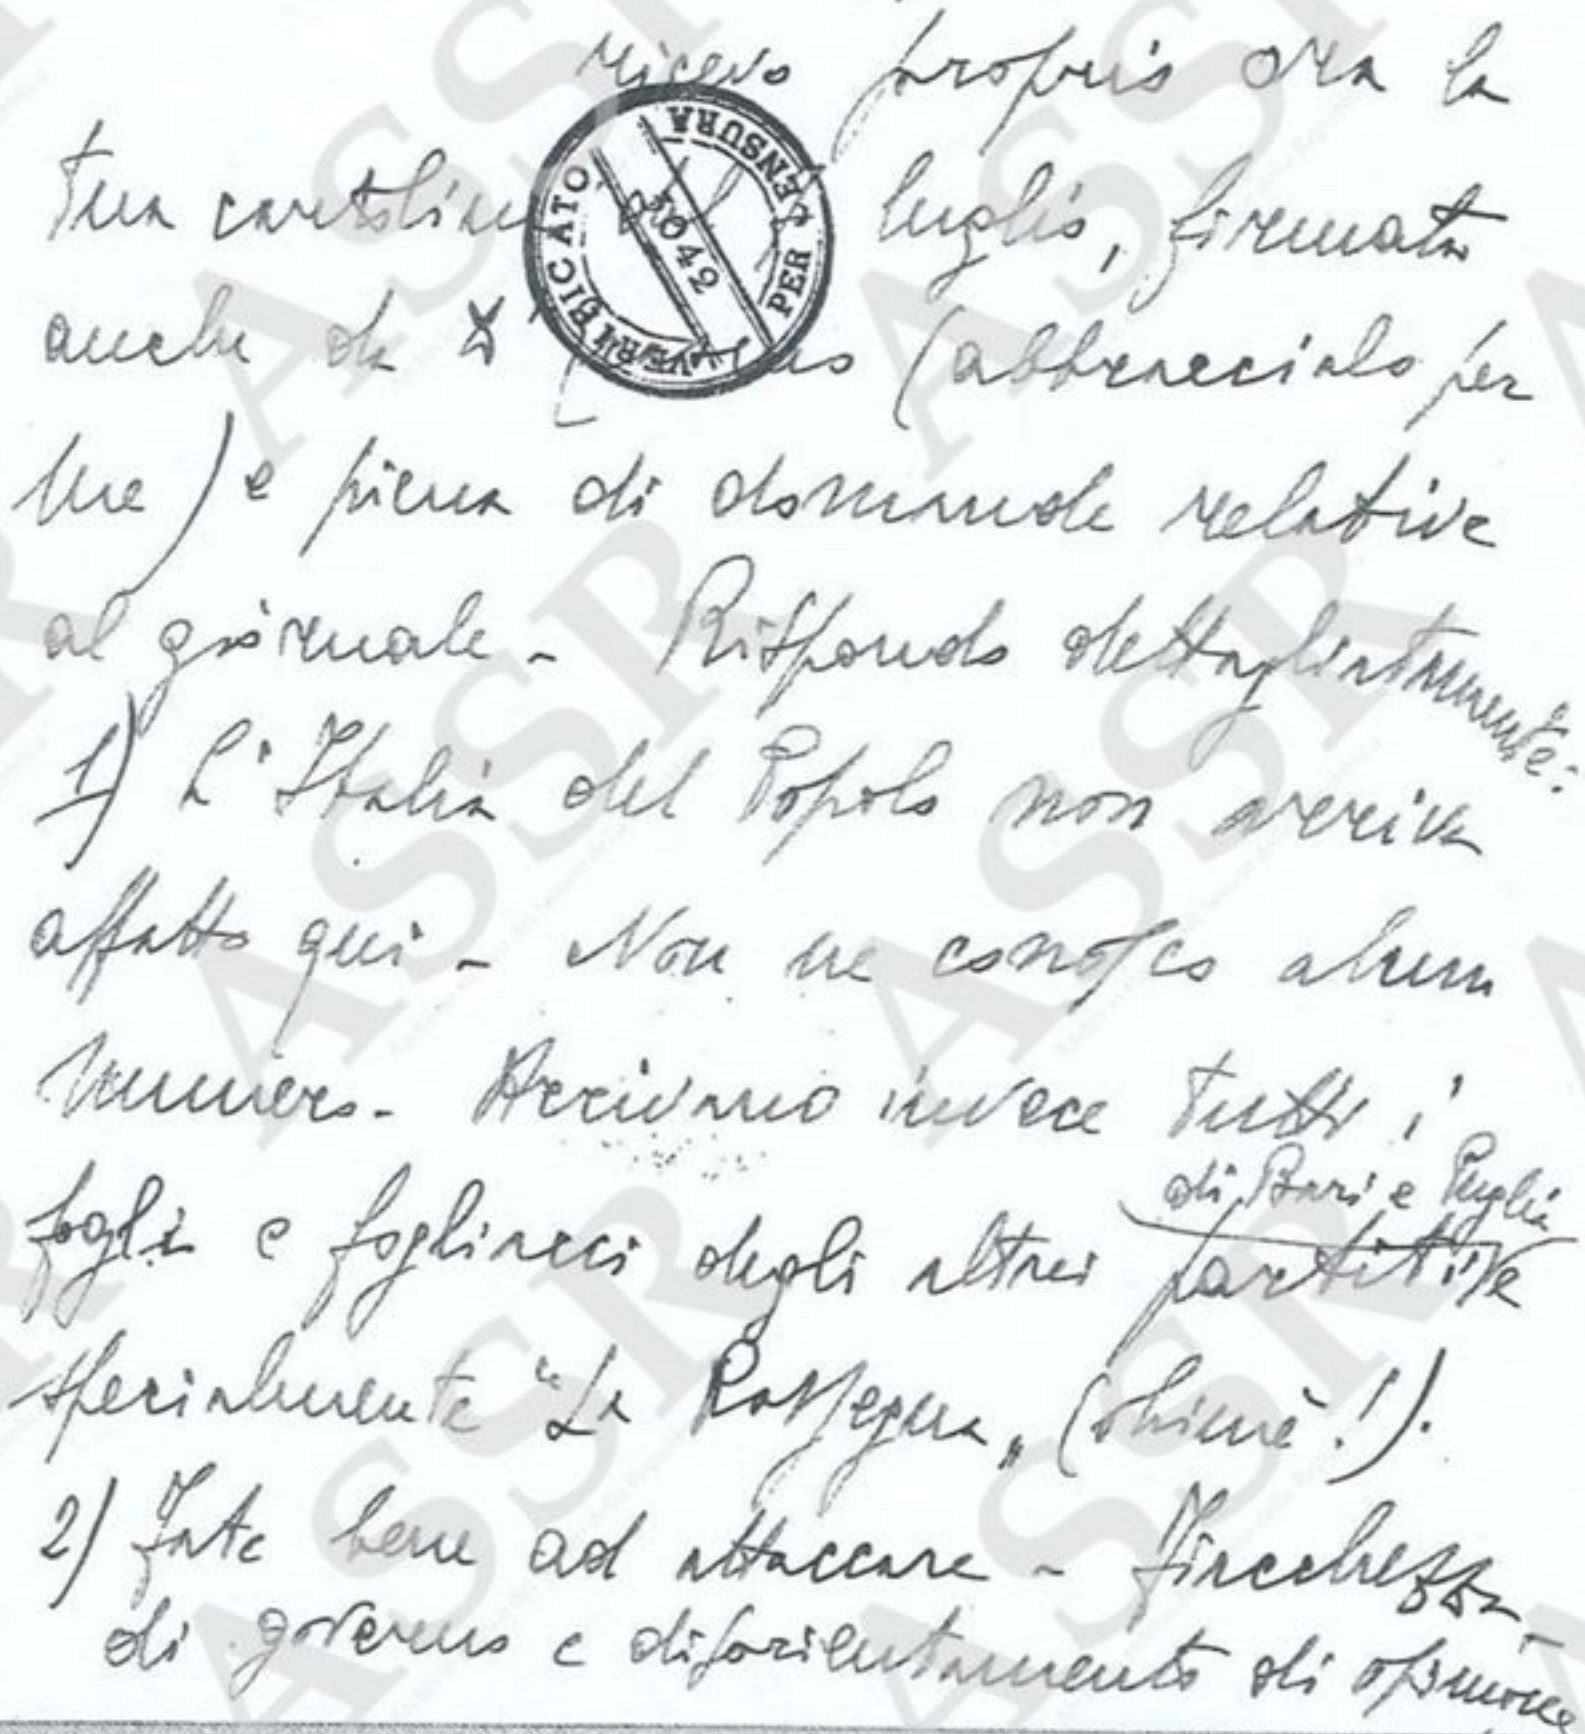 ricevo proprio ora la
tua cartolina luglio, firmata
anche da (abbraccialo per
me) e piena di domande relative
al giornale - Rispondo dettagliatamente:
1) L'Italia del Popolo non arriva
affatto qui - Non ne conosco alcun
numero - Arrivano invece tutti i
di Bari e Puglia
fogli e fogliacci degli altri partiti e
specialmente "La Rassegna" (ohimè!).
2) Fate bene ad attaccare - Fiacchezza
di governo e disorientamento di opinione
VERIFICATO PER CENSURA
30042
ASSR